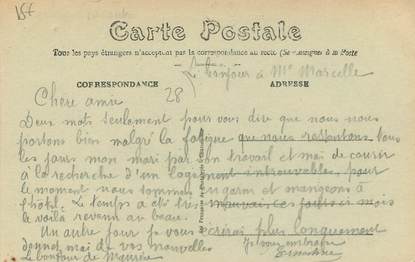 15€
Carte Postale
Tous les pays étrangers n'acceptent pas la correspondance au recto (Se renseignez à la Poste
Le bonjour à Mme Marcelle
CORRESPONDANCE
ADRESSE
28
Chère amie
Deux mots seulement pour vous dire que nous nous
portons bien malgré la fatigue que nous ressentons tous
les jours mon mari par son travail et moi de courir
à la recherche d'un logement introuvables, pour
le moment nous sommes au garni et mangeons à
l'hôtel. Le temps a été très mauvais, ces jours ci mais
le voilà revenu au beau.
Un autre jour je vous écrirai plus longuement
donnez moi de vos nouvelles
Je vous embrasse
Le bonjour de